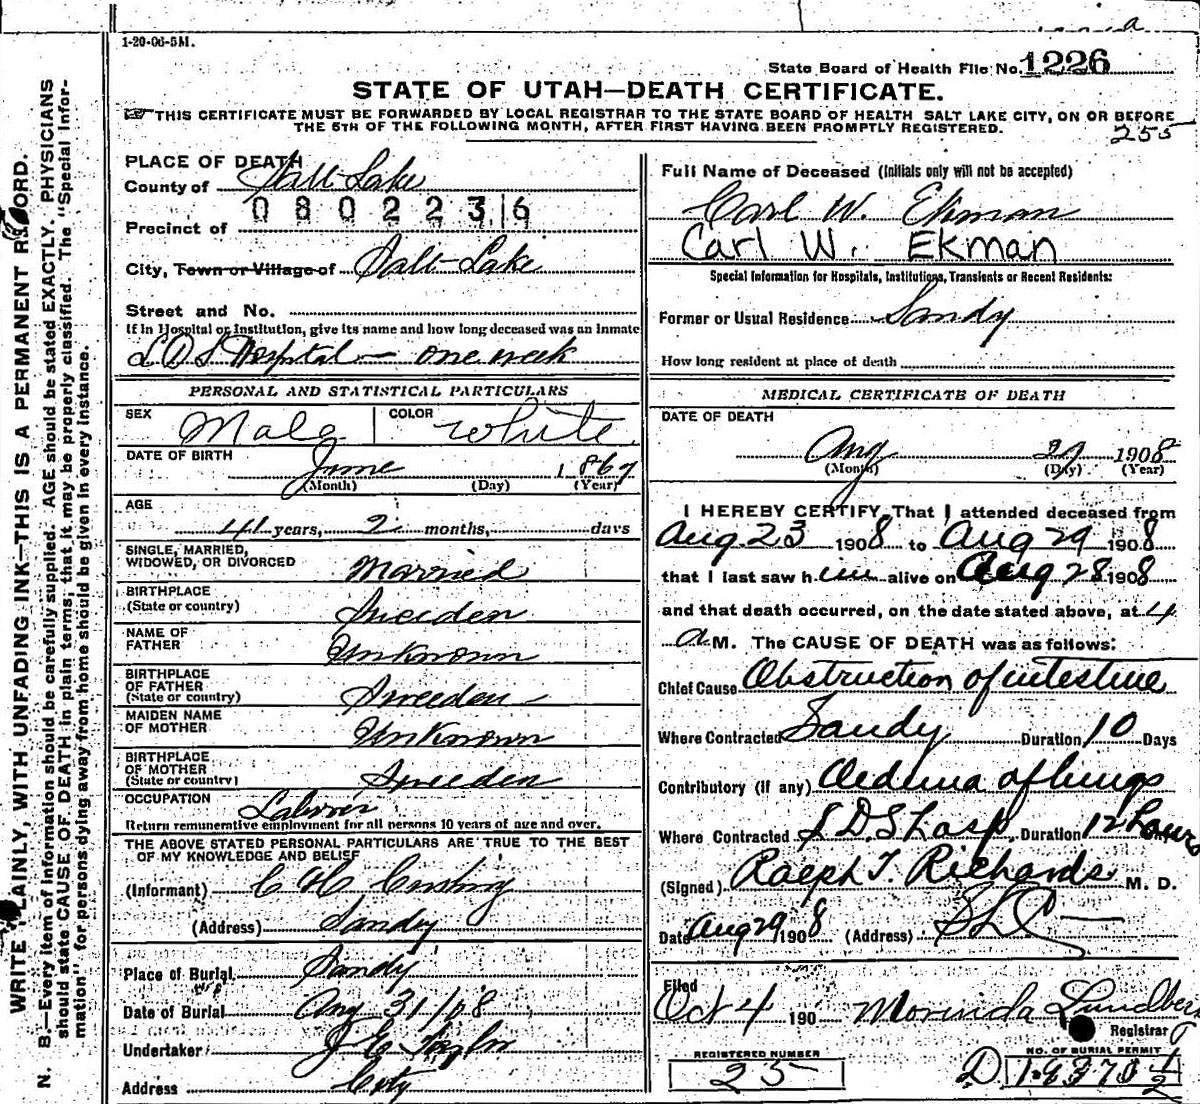 1-20-06-5M.
State Board of Health File No. 1226
STATE OF UTAH—DEATH CERTIFICATE.
THIS CERTIFICATE MUST BE FORWARDED BY LOCAL REGISTRAR TO THE STATE BOARD OF HEALTH SALT LAKE CITY, ON OR BEFORE
THE 5TH OF THE FOLLOWING MONTH, AFTER FIRST HAVING BEEN PROMPTLY REGISTERED.
255
WRITE PLAINLY, WITH UNFADING INK—THIS IS A PERMANENT RECORD.
N. B.—Every item of information should be carefully supplied. AGE should be stated EXACTLY. PHYSICIANS
should state CAUSE OF DEATH in plain terms, that it may be properly classified. The "Special Infor-
mation" for persons dying away from home should be given in every instance.
PLACE OF DEATH
County of Salt Lake
0802236
Precinct of
City, Town or Village of Salt Lake
Street and No.
If in Hospital or Institution, give its name and how long deceased was an inmate
L D S Hospital — one week
PERSONAL AND STATISTICAL PARTICULARS
SEX Male COLOR White
DATE OF BIRTH
June 1867
(Month) (Day) (Year)
AGE
41 years, 2 months, days
SINGLE, MARRIED,
WIDOWED, OR DIVORCED Married
BIRTHPLACE
(State or country) Sweeden
NAME OF
FATHER Unknown
BIRTHPLACE
OF FATHER
(State or country) Sweeden
MAIDEN NAME
OF MOTHER Unknown
BIRTHPLACE
OF MOTHER
(State or country) Sweeden
OCCUPATION Laborer
Return remunerative employment for all persons 10 years of age and over.
THE ABOVE STATED PERSONAL PARTICULARS ARE TRUE TO THE BEST
OF MY KNOWLEDGE AND BELIEF
(Informant) C H
(Address) Sandy
Place of Burial Sandy
Date of Burial Aug 31/08
Undertaker Taylor
Address City
Full Name of Deceased (Initials only will not be accepted)
Carl W. Ekman
Carl W. Ekman
Special Information for Hospitals, Institutions, Transients or Recent Residents:
Former or Usual Residence Sandy
How long resident at place of death
MEDICAL CERTIFICATE OF DEATH
DATE OF DEATH
Aug 29 1908
(Month) (Day) (Year)
I HEREBY CERTIFY, That I attended deceased from
Aug 23 1908 to Aug 29 1908
that I last saw him alive on Aug 28 1908
and that death occurred, on the date stated above, at 4
a M. The CAUSE OF DEATH was as follows:
Chief Cause Obstruction of intestine
Where Contracted Sandy Duration 10 Days
Contributory (if any) Oedema of lungs
Where Contracted L D S Hosp Duration 12 hours
(Signed) Ralph T. Richards M. D.
Date Aug 29 1908 (Address) S L C
Filed
Oct 4 190 Morinda Lundberg
Registrar
REGISTERED NUMBER
25
NO. OF BURIAL PERMIT